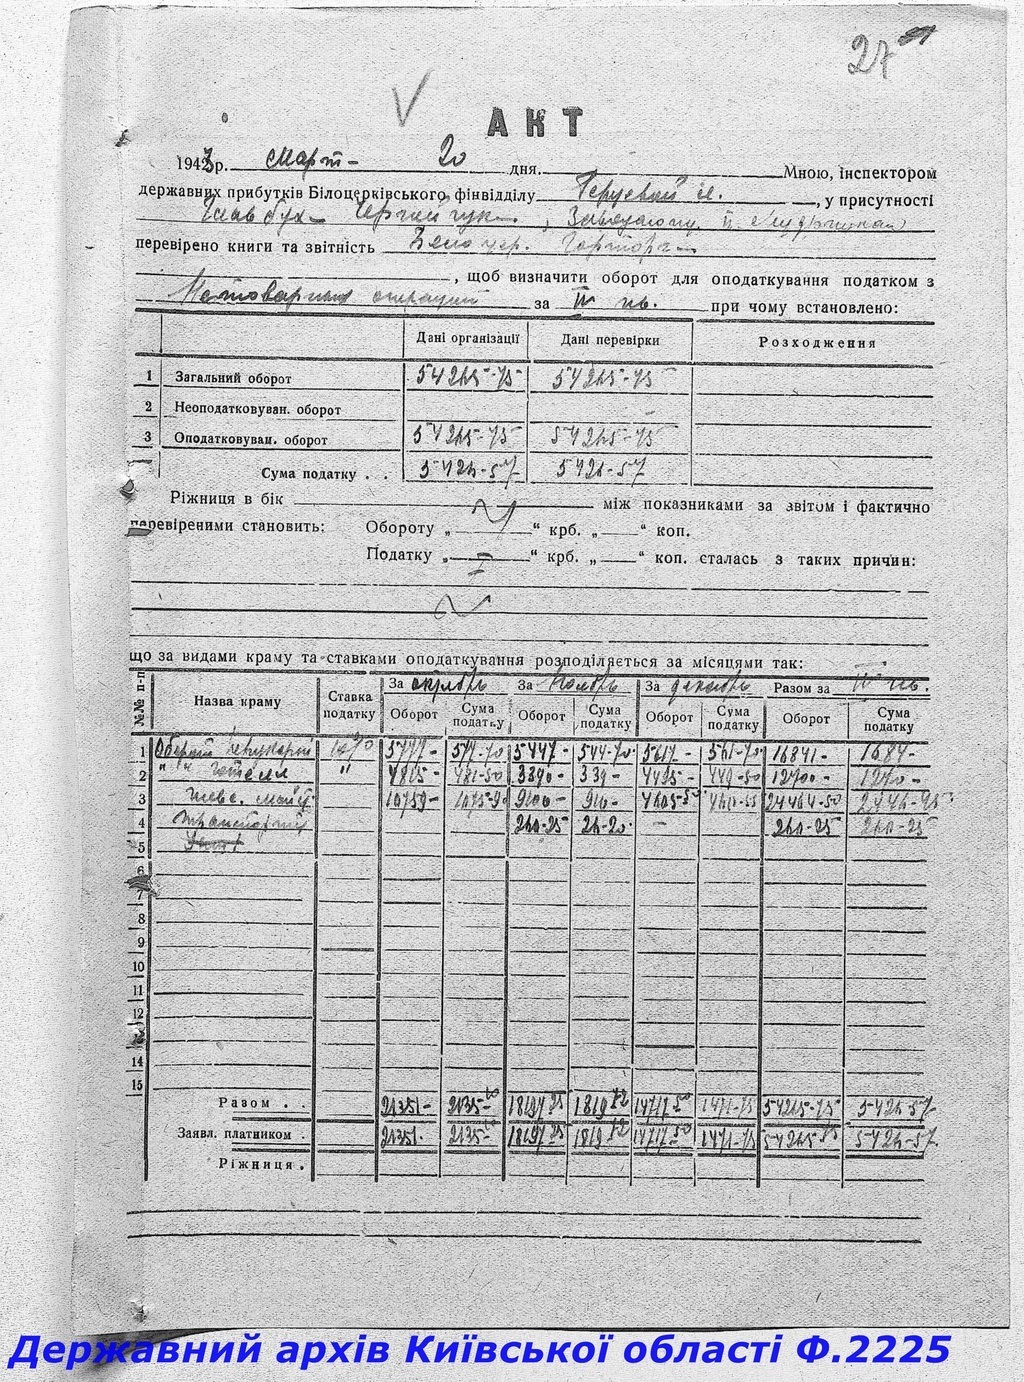 27
АКТ
1943 р. Март 20 дня. Мною, інспектором
державних прибутків Білоцерківського фінвідділу , у присутності
Главбух
перевірено книги та звітність Белоцер. Горторг
, щоб визначити оборот для оподаткування податком з
Нетоварных операций за IV кв. при чому встановлено:
Дані організації Дані перевірки Розходження
1 Загальний оборот 54265-75 54265-75
2 Неоподатковуван. оборот
3 Оподатковуван. оборот 54265-75 54265-75
Сума податку . . 5426-57 5426-57
Ріжниця в бік між показниками за звітом і фактично
перевіреними становить: Обороту „ “ крб. „ “ коп.
Податку „ “ крб. „ “ коп. сталась з таких причин:
що за видами краму та ставками оподаткування розподіляється за місяцями так:
№№ п-п Назва краму Ставка податку За октябрь За Ноябрь За декабрь Разом за IV кв.
Оборот Сума податку Оборот Сума податку Оборот Сума податку Оборот Сума податку
1 10% 5777- 577-70 5447- 544-70 5617- 561-70 16841- 1684-
2 " " " 4815- 481-50 3390- 339- 4495- 449-50 12700- 1270-
3 10759- 1075-90 9100- 910- 4605-50 460-55 24464-50 2446-45
4
5
6
7
8
9
10
11
12
13
14
15
Разом . . 21351- 2135- 18197 25 1819 72 14717-50 1471-75 54265-75 5426-57
Заявл. платником . 21351- 2135- 18197 25 1819 72 14717-50 1471-75 54265 75 5426-57
Ріжниця .
Державний архів Київської області Ф.2225